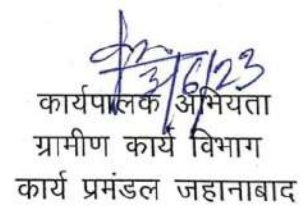 3/6/23
कार्यपालक अभियंता
ग्रामीण कार्य विभाग
कार्य प्रमंडल जहानाबाद